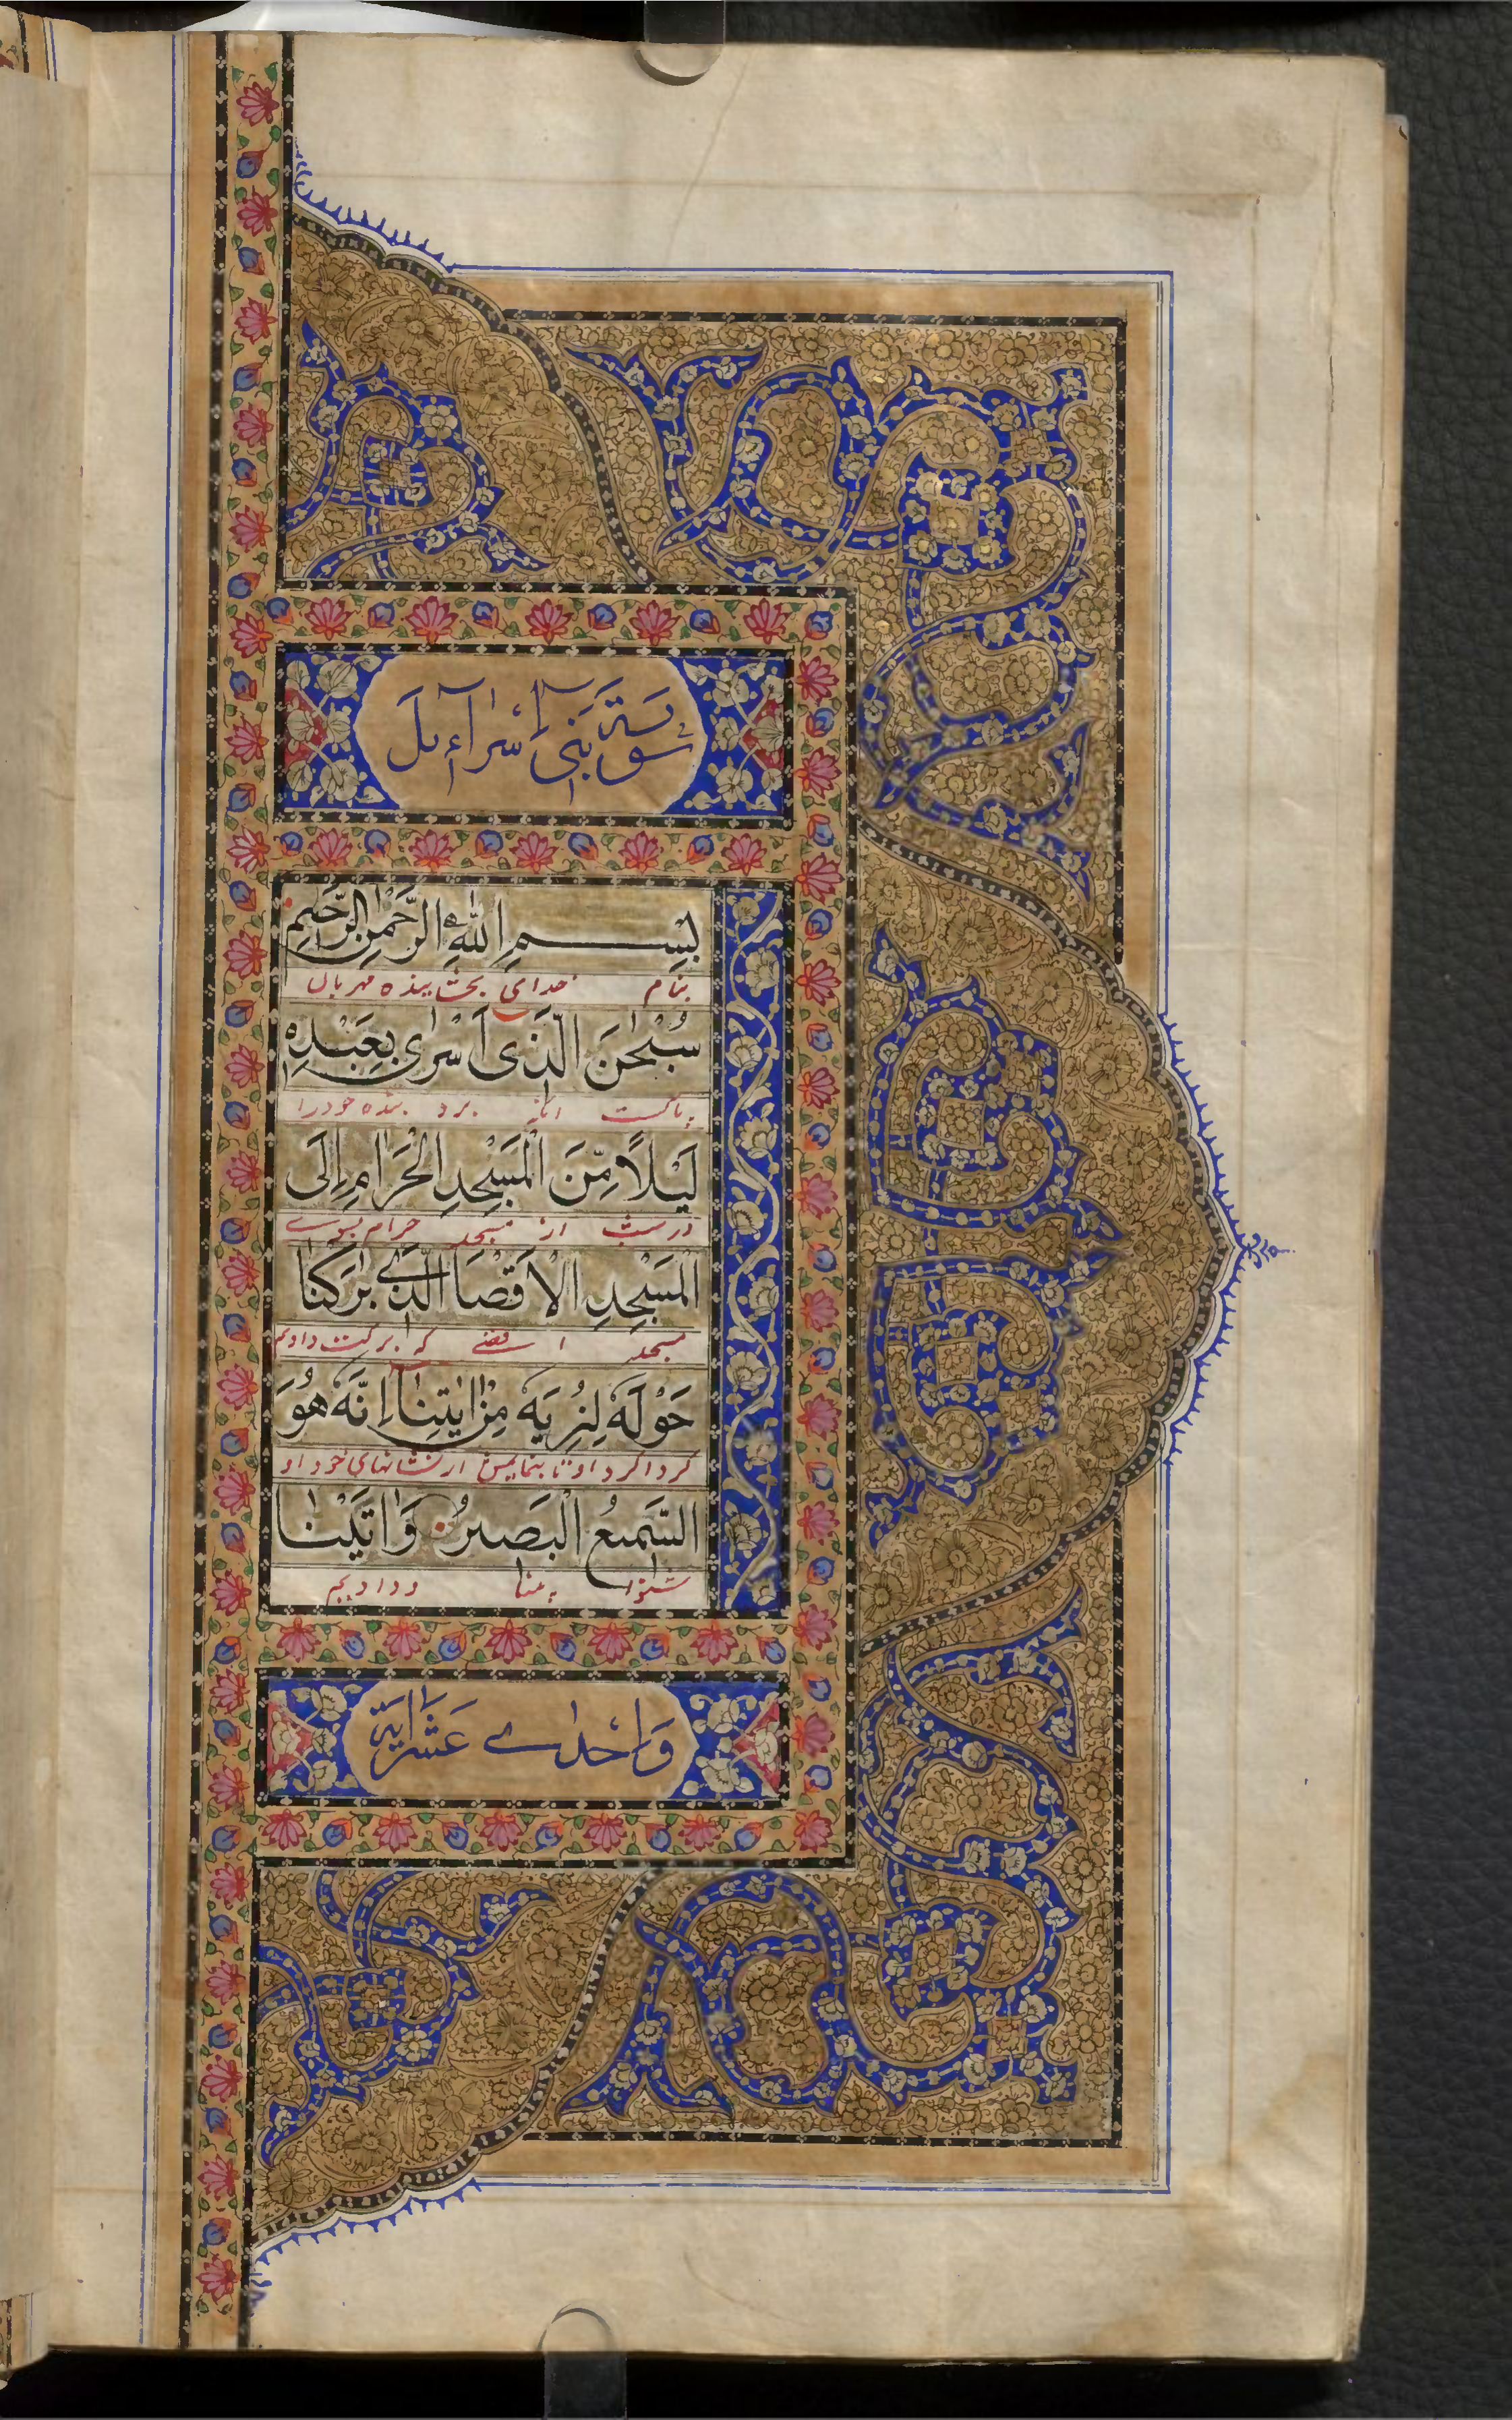 سورة بنی اسرآءیل
بسم الله الرحمن الرحیم
بنام خدای بخشاینده مهربان
سُبْحٰنَ الَّذی اَسْرٰی بِعَبْدِهٖ
پاکست انکه برد بنده خود را
لَیْلًا مِّنَ الْمَسْجِدِ الْحَرَامِ اِلَی
از مسجد حرام بسوی
الْمَسْجِدِ الْاَقْصَا الَّذی بٰرَکْنَا
مسجد اقصی که برکت دادیم
حَوْلَهٗ لِنُرِیَهٗ مِنْ اٰیٰتِنَا اِنَّهٗ هُوَ
کرداکرد او تا بنمایمش از نشانهای خود او
السَّمیعُ الْبَصیرُ وَاٰتَیْنَا
شنوا بینا و دادیم
وَاِحْدٰی عَشْرَ اٰیَة